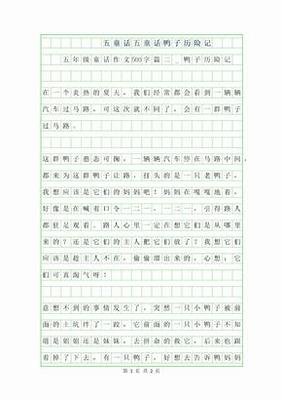 五童话五童话鸭子历险记
五年级童话作文500字篇二_鸭子历险记
在一个炎热的夏天。我们经常都会看到一辆辆
汽车过马路。可这次就不同了。会有一群鸭子
过马路。
这群鸭子憨态可掬。一辆辆汽车停在马路中间,
都来为这群鸭子让路。打头的是一只老鸭子。
我想应该是它们的妈妈吧!妈妈在嘎嘎地着。
好像是在喊着口令一二一。一二一。引得路人
都驻足观看。路人心里一定在想它们是从哪里
来的?还是它们的主人把它们放了?我想它们
应该是趁主人不在。偷偷溜出来的。心想:它
们可真淘气呀!
意想不到的事情发生了。突然一只小鸭子被前
面的土坑绊了一跤。它前面的一只小鸭子不知
是姐姐还是妹妹。去拼命的救它。自己后来也跟
着掉了下去。有一只鸭子。好想去告诉鸭妈妈
第1页共2页